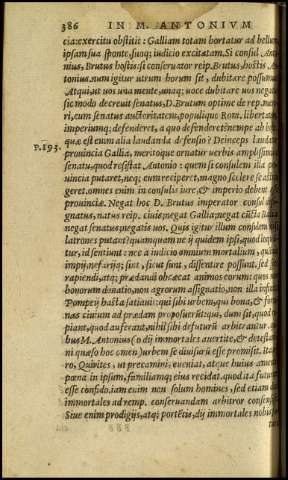 386 IN M. ANTONIVM
cia: exercitu obstitit: Galliam totam hortatur ad bellum
ipsam sua sponte, suoq; iudicio excitatam. Si consul Anto
nius, Brutus hostis: si conseruator reip. Brutus, hostis An
tonius. num igitur utrum horum sit, dubitare possumus?
Atqui, ut uos una mente, unaq; uoce dubitare uos negatis,
sic modo decreuit senatus, D. Brutum optime de rep. mere
ri, cum senatus auctoritatem, populiq; Rom. libertatem
imperiumq; defenderet, a quo defenderet? nempe ab hoste,
P. 193. quæ est enim alia laudanda defensio? Deinceps laudatur
prouincia Gallia, meritoq; ornatur uerbis amplissimis a
senatu, quod resistat Antonio: quem si consulem illa pro
uincia putaret, neq; eum reciperet, magno scelere se astrin
geret. omnes enim in consulis iure, & imperio debent esse
prouinciæ. Negat hoc D. Brutus imperator consul desi
gnatus, natus reip. ciuis: negat Gallia: negat cuncta Italia:
negat senatus: negatis uos. Quis igitur illum consulem nisi
latrones putant? quamquam ne ij quidem ipsi, quod loquun
tur, id sentiunt: nec a iudicio omnium mortalium, quamuis
impij, nefarijq; sint, sicut sunt, dissentire possunt. sed spes
rapiendi, atq; prædandi obcæcat animos eorum: quos non
bonorum donatio, non agrorum assignatio, non illa infinita
Pompeij hasta satiauit: qui sibi urbem, qui bona, & fortu
nas ciuium ad prædam proposuerunt: qui, dum sit, quod ra
piant, quod auferant, nihil sibi defuturum arbitrantur. qui
bus M. Antonius (o dij immortales auertite, & detestami
ni quæso hoc omen) urbem se diuisurum esse promisit. ita ue
ro, Quirites, ut precamini, eueniat, atque huius amentiæ
pœna in ipsum, familiamq; eius recidat. quod ita futurum
esse confido. iam enim non solum homines, sed etiam deos
immortales ad remp. conseruandam arbitror consensisse.
Siue enim prodigijs, atq; portentis, dij immortales nobis fu